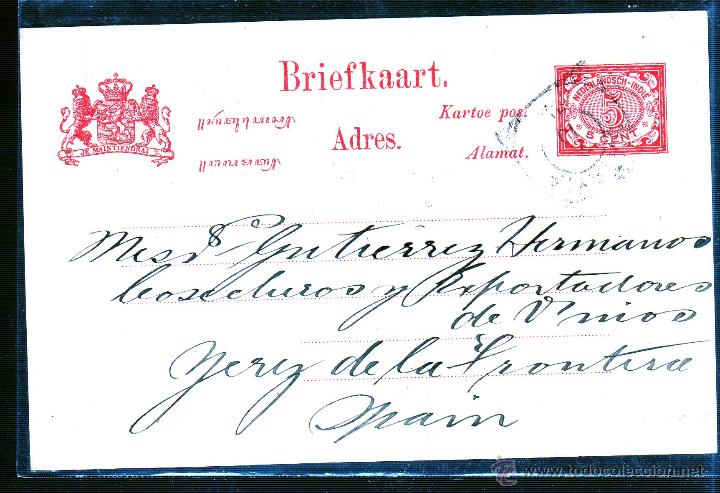 Briefkaart.
JE MAINTIENDRAI
Kartoe pos.
Adres.
Alamat.
NEDERLANDSCH-INDIË
5
5 CENT
Mesrs Gutiérrez Hermanos
Cosecheros y Exportadores
de Vinios
Jerez de la Frontera
Spain
todocoleccion.net